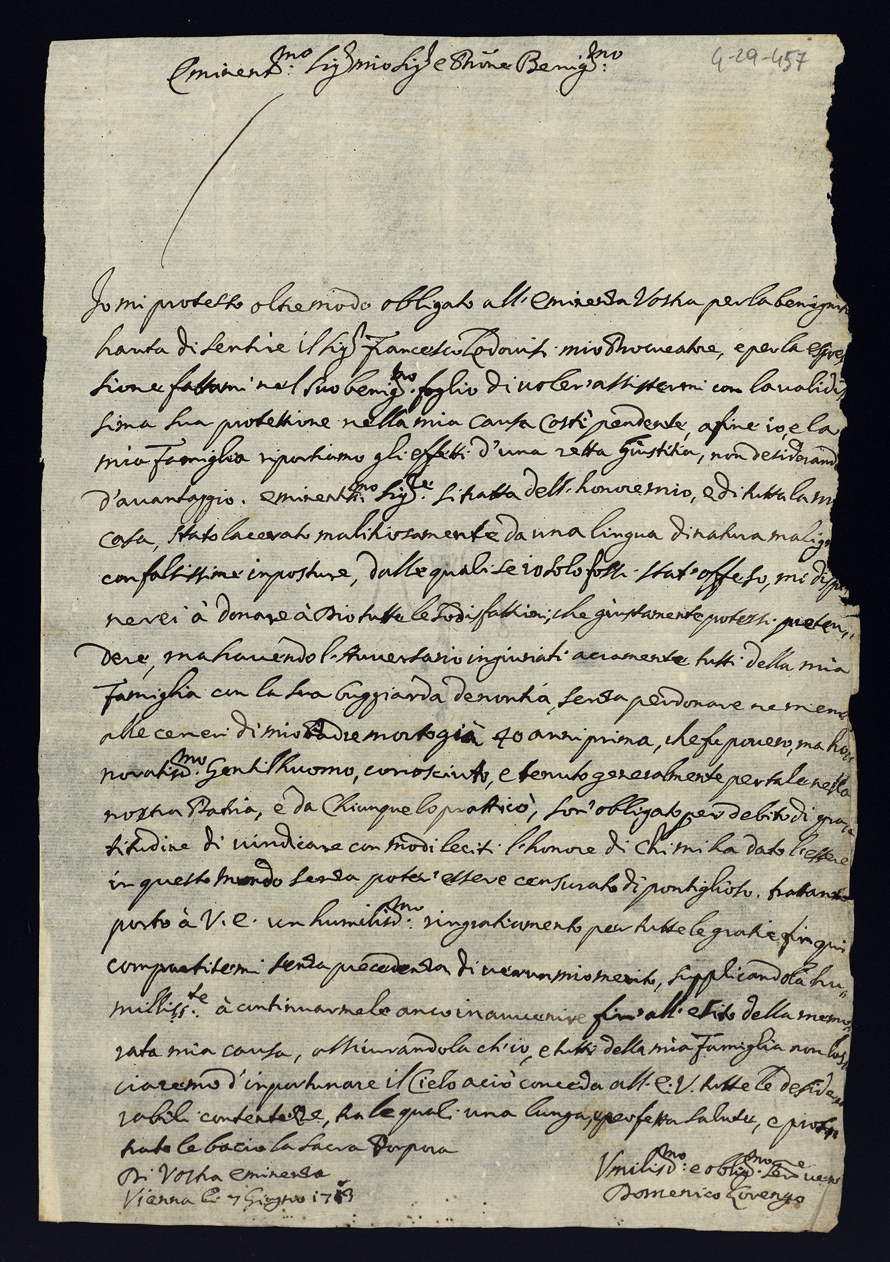 4-29-457
Eminent.mo Sig.r mio Sig.r e Prône Benig.mo
Io mi protesto oltremodo obligato all'Eminenza Vostra per la benignità
hauta di sentire il Sig.r Francesco Lodovisi mio Procuratore, e per la espres
sione fattami nel suo benig.mo foglio di voler' assistermi con la validis
sima sua protettione nella mia causa costi pendente, afine io, e la
mia Famiglia riportiamo gli effetti d'una retta Giustitia, non desiderand
d'auantaggio. Eminent.mo Sig.re si tratta dell'honore mio, e di tutta la mi
casa, stato lacerato malitiosamente da una lingua di natura malig
con falsissime imposture, dalle quali se io solo fossi stat'offeso, mi dispo
nerei à donare à Dio tutte le sodisfattioni, che giustamente potessi preten,,
dere, ma havendo l'Avversario ingiuriati acramente tutti della mia
Famiglia con la sua buggiarda denontia, senza perdonare ne meno
alle ceneri di mio Padre morto già 40 anni prima, che fu povero, ma hon
noratiss.mo Gentilhuomo, conosciuto, e tenuto generalmente per tale nella
nostra Patria, e da chiunque lo pratticò, son' obligato per debito di gra
titudine di vindicare con modi leciti l'honore di chi mi ha dato l'essere
in questo mondo senza poter' essere censurato di pontiglioso. trattanto
porto à V. E. un humilis.mo ringratiamento per tutte le gratie fin qui
compartitemi senza precedenza di verun mio merito, supplicandola hu,,
milliss.te à continuarmele anco in auuenire fin'all'esito della memo
rata mia causa, assicurandola ch'io, e tutti della mia Famiglia non las
ciaremo d'inportunare il Cielo aciò conceda all'E. V. tutte le deside
rabili contentezze, tra le quali una lunga, e perfetta salute, e pros
trato le bacio la sacra Porpora
Di Vostra Eminenza
Vienna li 7 Giugno 1713
Umilis.mo e oblig.mo Ser.re vero
Domenico Lorenzo